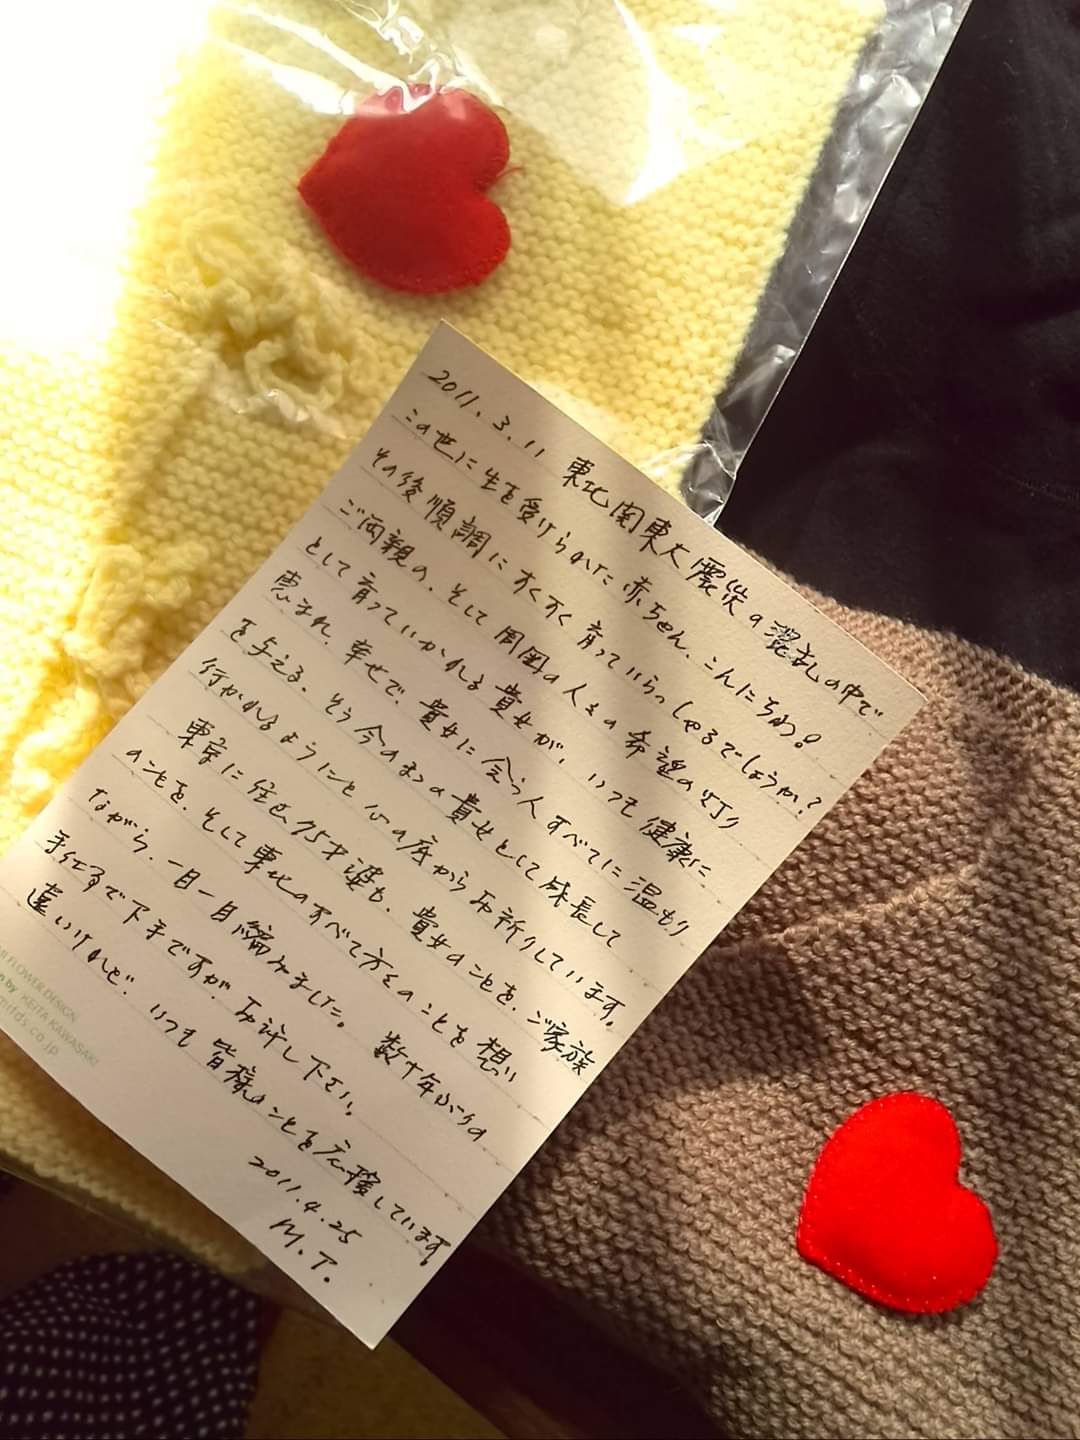 2011.3.11 東北関東大震災の混乱の中で
この世に生を受けられた赤ちゃん、こんにちわ!
その後順調にすくすく育っていらっしゃるでしょうか?
ご両親の、そして周囲の人々の希望の灯り
として育っていかれる貴女が、いつも健康に
恵まれ、幸せで、貴女に会う人すべてに温もり
を与える、そう今のままの貴女として成長して
行かれるようにと心の底からお祈りしています。
東京に住む75才婆も、貴女のことを、ご家族
のことを、そして東北のすべて方々のことを想い
ながら、一目一目編みました。数十年ぶりの
手仕事で下手ですが、お許し下さい。
遠いけれど、いつも皆様のことを応援しています。
2011.4.25
M.T.
FLOWER DESIGN
by KEITA KAWASAKI
mifds.co.jp